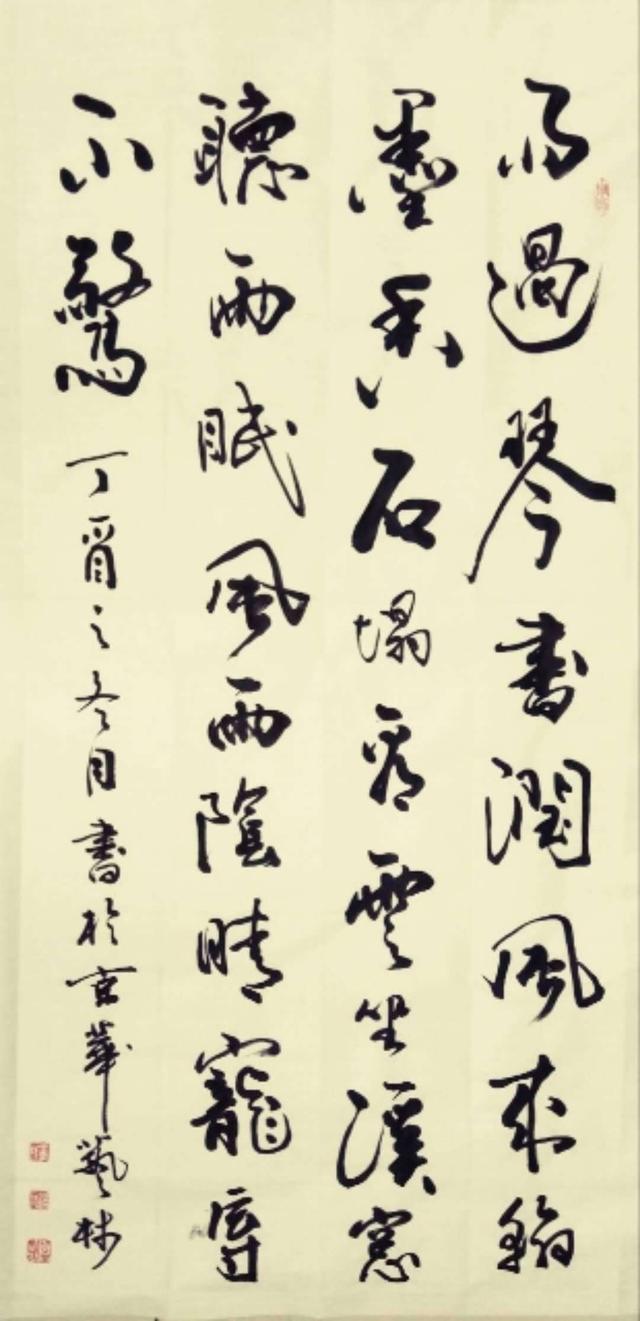 雨過琴書潤風來翰
墨香石塌看雲坐溪窓
聽雨眠風雨陰晴寵辱
不驚
丁酉之冬月書於京華藝林